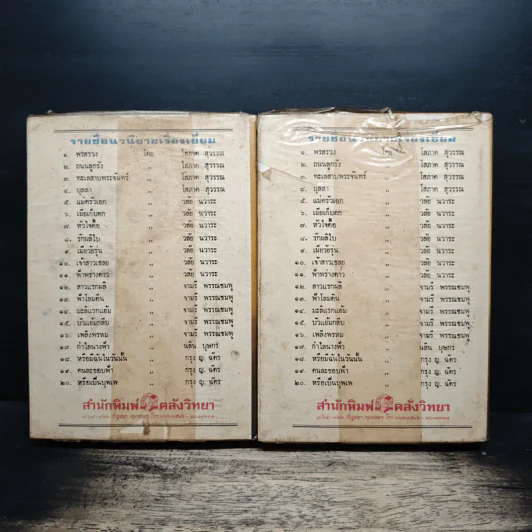 รายชื่อนวนิยายเรื่องเยี่ยม
๑. พรสรวง โดย โสภาค สุวรรณ
๒. ถนนลูกรัง ,, โสภาค สุวรรณ
๓. ทะเลสาบพระจันทร์ ,, โสภาค สุวรรณ
๔. บุลลา ,, โสภาค สุวรรณ
๕. แม่ครัวเอก ,, วลัย นวาระ
๖. เมียเก็บตก ,, วลัย นวาระ
๗. หัวใจดื้อ ,, วลัย นวาระ
๘. รักผลิใบ ,, วลัย นวาระ
๙. เมียวัยรุ่น ,, วลัย นวาระ
๑๐. เจ้าสาวเชลย ,, วลัย นวาระ
๑๑. ฟ้าพร่างดาว ,, วลัย นวาระ
๑๒. สาวแรกผลิ ,, จามรี พรรณชมพู
๑๓. ฟ้าโลมดิน ,, จามรี พรรณชมพู
๑๔. มะลิแรกแย้ม ,, จามรี พรรณชมพู
๑๕. บัวแย้มกลีบ ,, จามรี พรรณชมพู
๑๖. เพลิงพรหม ,, จามรี พรรณชมพู
๑๗. กำไลนางฟ้า ,, นลิน บุษกร
๑๘. หรือมีฉันในวันนั้น ,, กรุง ญ. ฉัตร
๑๙. คนละขอบฟ้า ,, กรุง ญ. ฉัตร
๒๐. หรือเป็นบุพเพ ,, กรุง ญ. ฉัตร
สำนักพิมพ์ คลังวิทยา
รายชื่อนวนิยายเรื่องเยี่ยม
๑. พรสรวง โดย โสภาค สุวรรณ
๒. ถนนลูกรัง ,, โสภาค สุวรรณ
๓. ทะเลสาบพระจันทร์ ,, โสภาค สุวรรณ
๔. บุลลา ,, โสภาค สุวรรณ
๕. แม่ครัวเอก ,, วลัย นวาระ
๖. เมียเก็บตก ,, วลัย นวาระ
๗. หัวใจดื้อ ,, วลัย นวาระ
๘. รักผลิใบ ,, วลัย นวาระ
๙. เมียวัยรุ่น ,, วลัย นวาระ
๑๐. เจ้าสาวเชลย ,, วลัย นวาระ
๑๑. ฟ้าพร่างดาว ,, วลัย นวาระ
๑๒. สาวแรกผลิ ,, จามรี พรรณชมพู
๑๓. ฟ้าโลมดิน ,, จามรี พรรณชมพู
๑๔. มะลิแรกแย้ม ,, จามรี พรรณชมพู
๑๕. บัวแย้มกลีบ ,, จามรี พรรณชมพู
๑๖. เพลิงพรหม ,, จามรี พรรณชมพู
๑๗. กำไลนางฟ้า ,, นลิน บุษกร
๑๘. หรือมีฉันในวันนั้น ,, กรุง ญ. ฉัตร
๑๙. คนละขอบฟ้า ,, กรุง ญ. ฉัตร
๒๐. หรือเป็นบุพเพ ,, กรุง ญ. ฉัตร
สำนักพิมพ์ คลังวิทยา